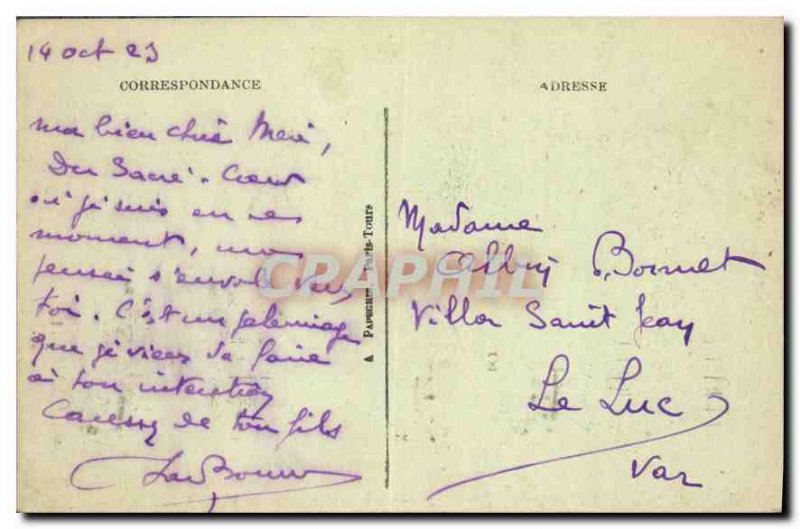 14 oct 23
CORRESPONDANCE
ma bien chère Mère,
Du Sacré-Coeur
où je suis en ce
moment, ma
pensée s'envole vers
toi. C'est un pelerinage
que je viens de faire
à ton intention
Caresses de ton fils
A PAPEGHIN, Paris-Tours
ADRESSE
Madame
Bonnet
Villa Saint Jean
Le Luc
Var
CPARAPHIL